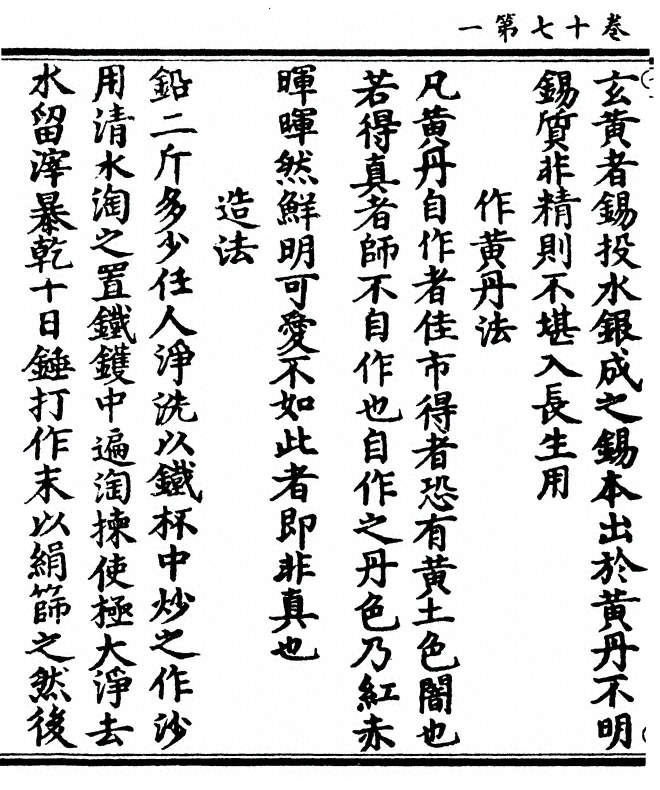 卷七十第一
玄黃者錫投水銀成之錫本出於黃丹不明
錫質非精則不堪入長生用
作黃丹法
凡黃丹自作者佳市得者恐有黃土色闇也
若得真者師不自作也自作之丹色乃紅赤
暉暉然鮮明可愛不如此者即非真也
造法
鉛二斤多少任人淨洗以鐵杯中炒之作沙
用清水淘之置鐵鑊中遍淘揀使極大淨去
水留滓暴乾十日錘打作末以絹篩之然後